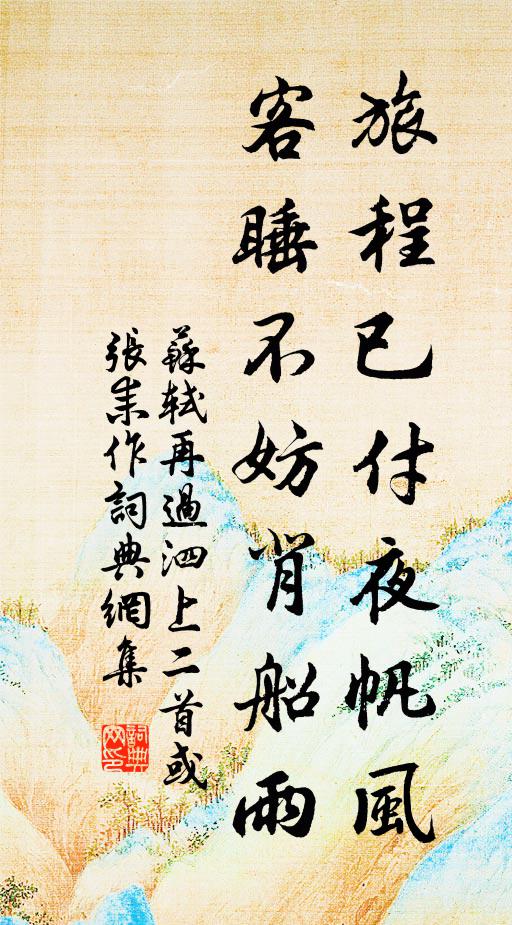 旅程已付夜帆風
客睡不妨背船雨
蘇軾再過泗上二首或
張耒作詞典網集
詞典網印